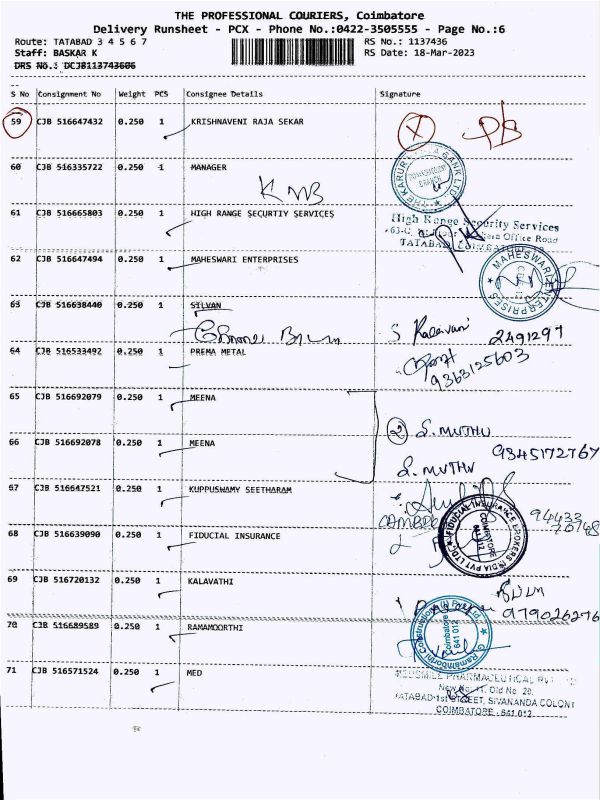 THE PROFESSIONAL COURIERS, Coimbatore
Delivery Runsheet - PCX - Phone No.:0422-3505555 - Page No.:6
Route: TATABAD 3 4 5 6 7
RS No.: 1137436
Staff: BASKAR K
RS Date: 18-Mar-2023
DRS No.: DCJB113743606
S No Consignment No Weight PCS Consignee Details Signature
59 CJB 516647432 0.250 1 KRISHNAVENI RAJA SEKAR
60 CJB 516335722 0.250 1 MANAGER
KMB
THE KARUR BANK LTD
BRANCH
61 CJB 516665803 0.250 1 HIGH RANGE SECURTIY SERVICES
High Range Security Services
Office Road
TATABAD, COIMBATORE
62 CJB 516647494 0.250 1 MAHESWARI ENTERPRISES
MAHESWARI ENTERPRISES
63 CJB 516638440 0.250 1 SILVAN
S Kalaivani 2491297
64 CJB 516533492 0.250 1 PREMA METAL
9363125603
65 CJB 516692079 0.250 1 MEENA
2 S. MUTHU
9345172767
66 CJB 516692078 0.250 1 MEENA
S. MUTHU
67 CJB 516647521 0.250 1 KUPPUSWAMY SEETHARAM
94433
70748
68 CJB 516639090 0.250 1 FIDUCIAL INSURANCE
FIDUCIAL INSURANCE BROKERS INDIA PVT LTD
COIMBATORE
641 012
69 CJB 516720132 0.250 1 KALAVATHI
979026276
70 CJB 516689589 0.250 1 RAMAMOORTHI
G. Ramamoorthi Constructions (I) Pvt Ltd
Coimbatore
641 012
71 CJB 516571524 0.250 1 MED
MEDSMILE PHARMACEUTICAL PVT
New No: 11, Old No. 20,
TATABAD 1st STREET, SIVANANDA COLONY
COIMBATORE - 641 012